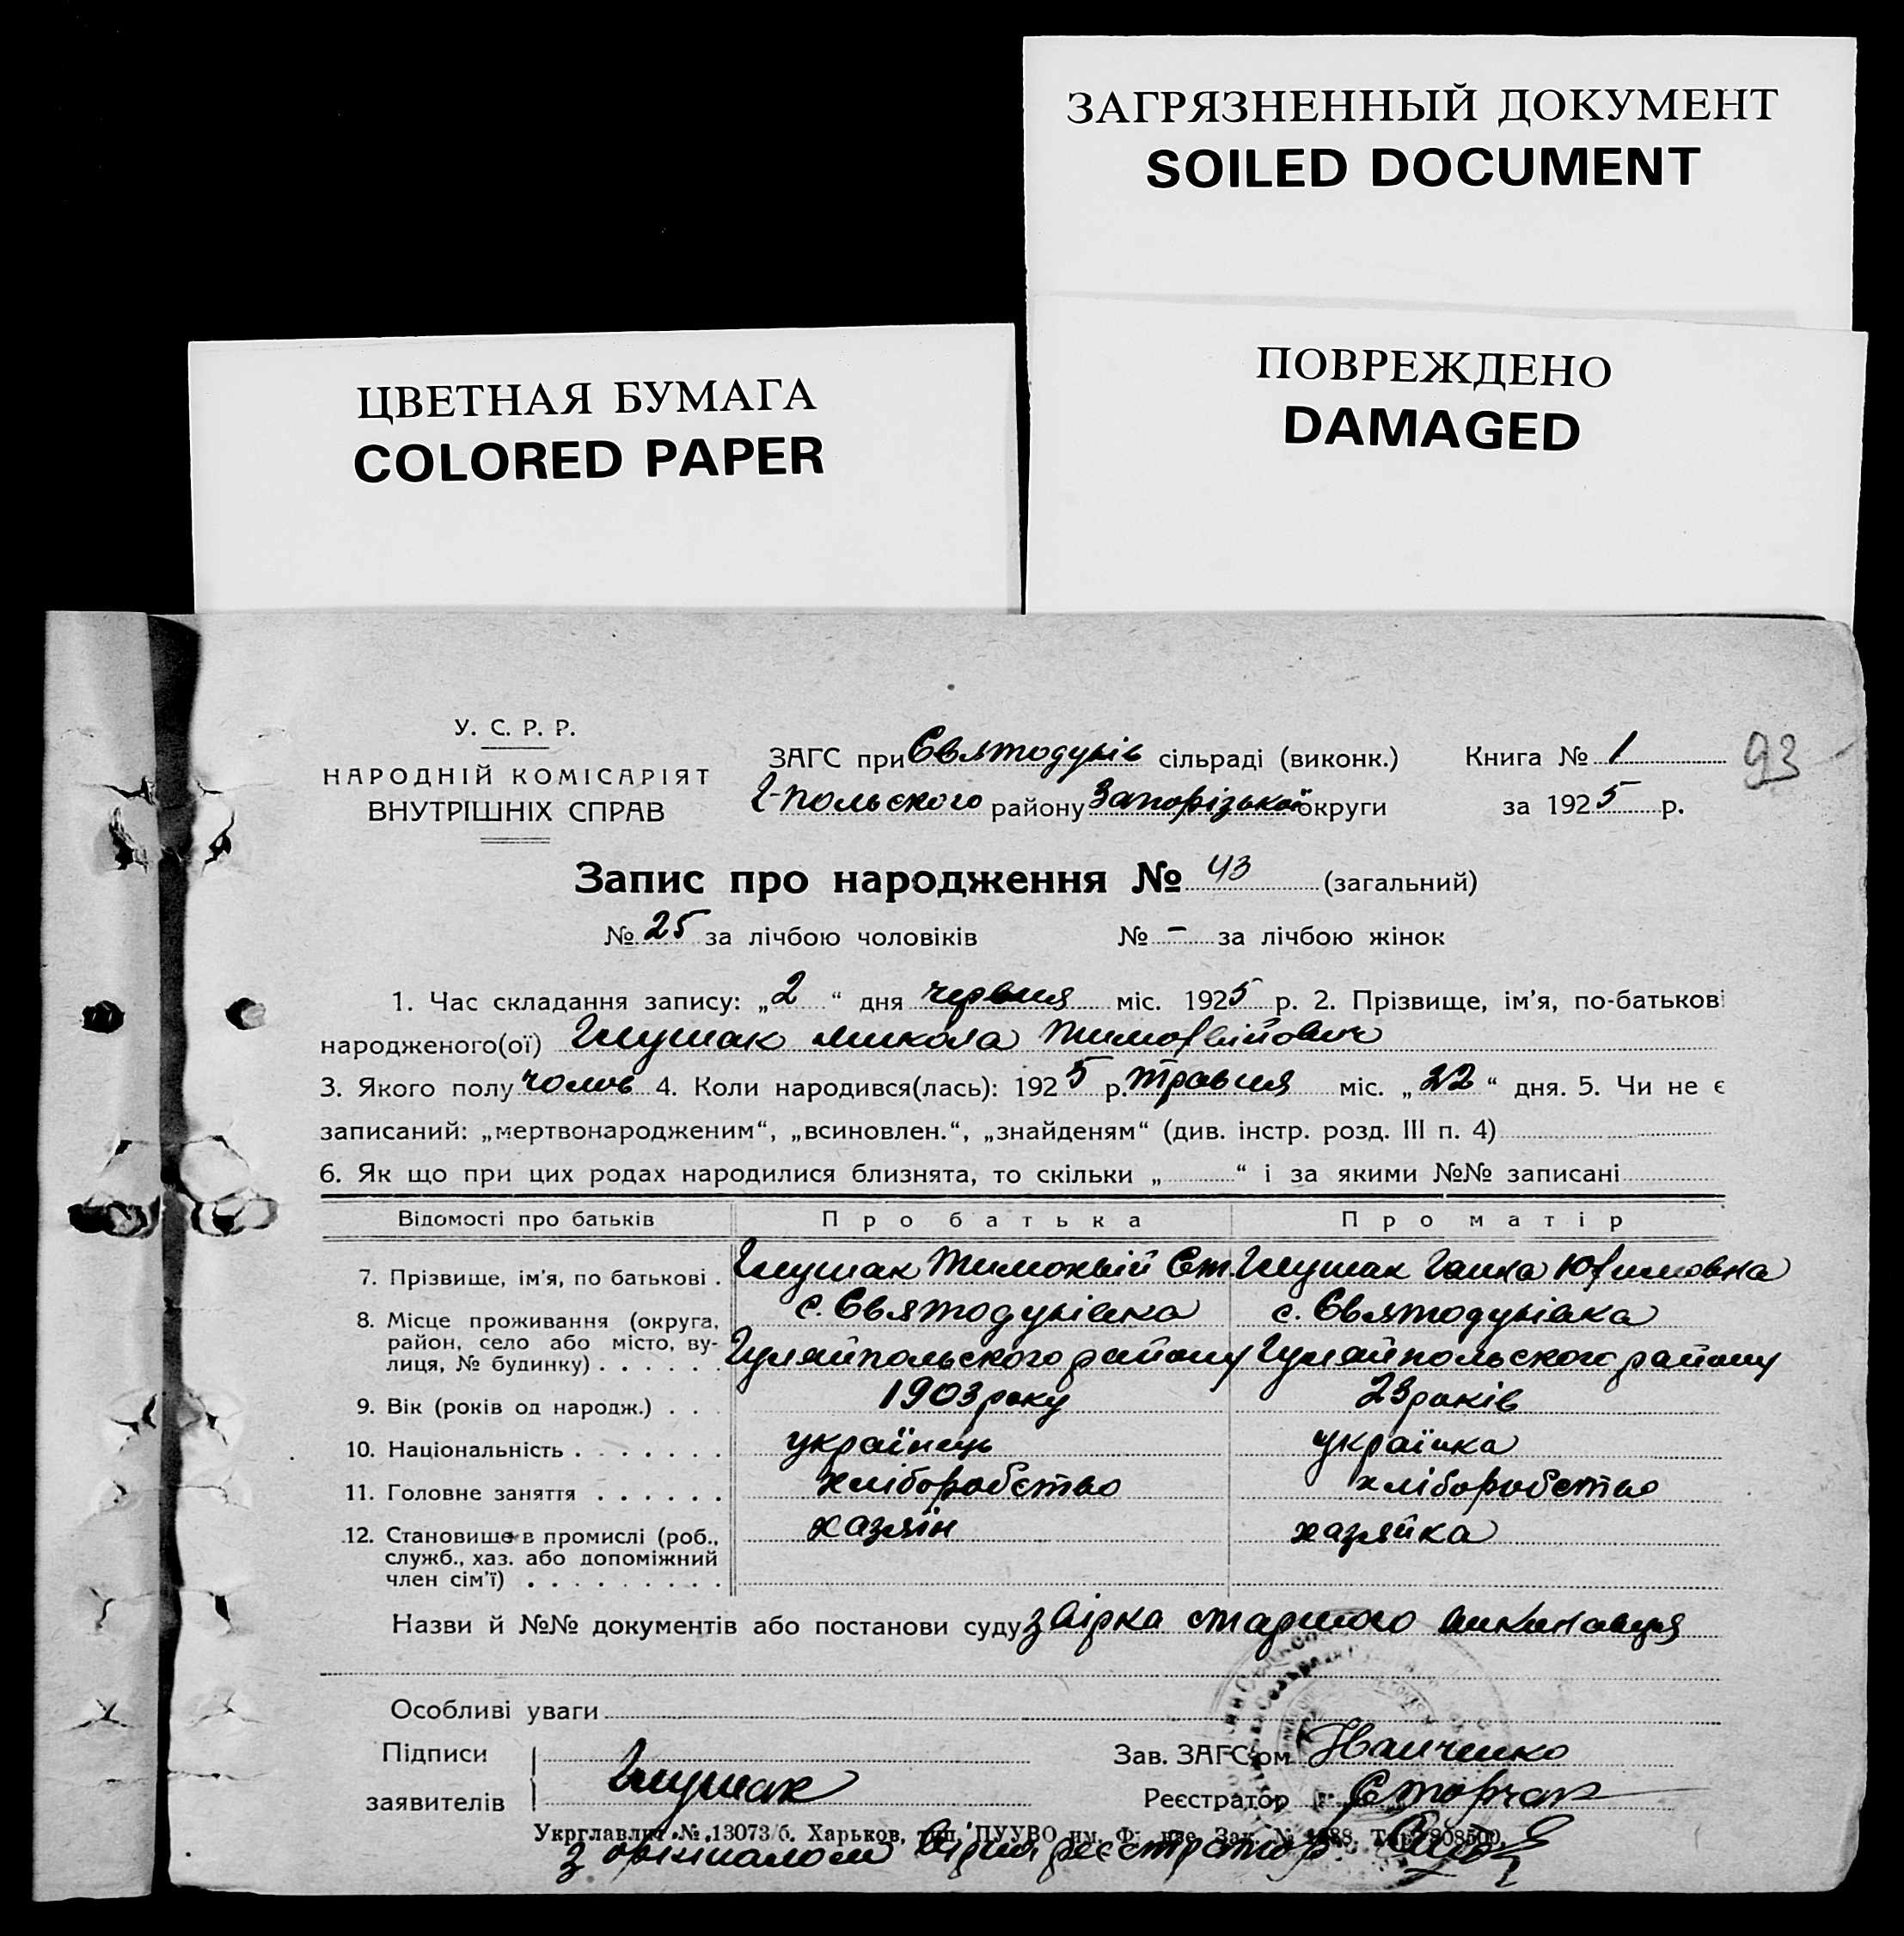 ЗАГРЯЗНЕННЫЙ ДОКУМЕНТ
SOILED DOCUMENT
ЦВЕТНАЯ БУМАГА
COLORED PAPER
ПОВРЕЖДЕНО
DAMAGED
У. С. Р. Р.
НАРОДНІЙ КОМІСАРІЯТ
ВНУТРІШНІХ СПРАВ
ЗАГС при Святодухів сільраді (виконк.) Книга № 1 93
Г-польского району Запорізької округи за 1925 р.
Запис про народження № 43 (загальний)
№ 25 за лічбою чоловіків № - за лічбою жінок
1. Час складання запису: „2“ дня червня міс. 1925 р. 2. Прізвище, ім’я, по-батькові
народженого(ої) Глушак Микола Тимофійович
3. Якого полу чолов 4. Коли народився(лась): 1925 р. травня міс. „22“ дня. 5. Чи не є
записаний: „мертвонародженим“, „всиновлен.“, „знайденям“ (див. інстр. розд. III п. 4)
6. Як що при цих родах народилися близнята, то скільки „ “ і за якими №№ записані
Відомості про батьків Про батька Про матір
7. Прізвище, ім’я, по батькові . Глушак Тимохвій Ст. Глушак Ганна Юфимовна
8. Місце проживання (округа, с. Святодухівка с. Святодухівка
район, село або місто, ву-
лиця, № будинку) . . . . . Гуляйпольского району Гуляйпольского району
9. Вік (років од народж.) . . . 1903 року 23 років
10. Національність . . . . . . . українець українка
11. Головне заняття . . . . . . хліборобство хліборобство
12. Становище в промислі (роб., хазяїн хазяйка
служб., хаз. або допоміжний
член сім’ї) . . . . . . . . .
Назви й №№ документів або постанови суду звірка старшого виконавця
Особливі уваги
Підписи Зав. ЗАГС’ом
заявителів Глушак Реєстратор Сторчак
Укрглавліт № 13073/б. Харьков, тип. ПУУВО им. Фрунзе. Зак. №
з орігіналом вірно реєстратор